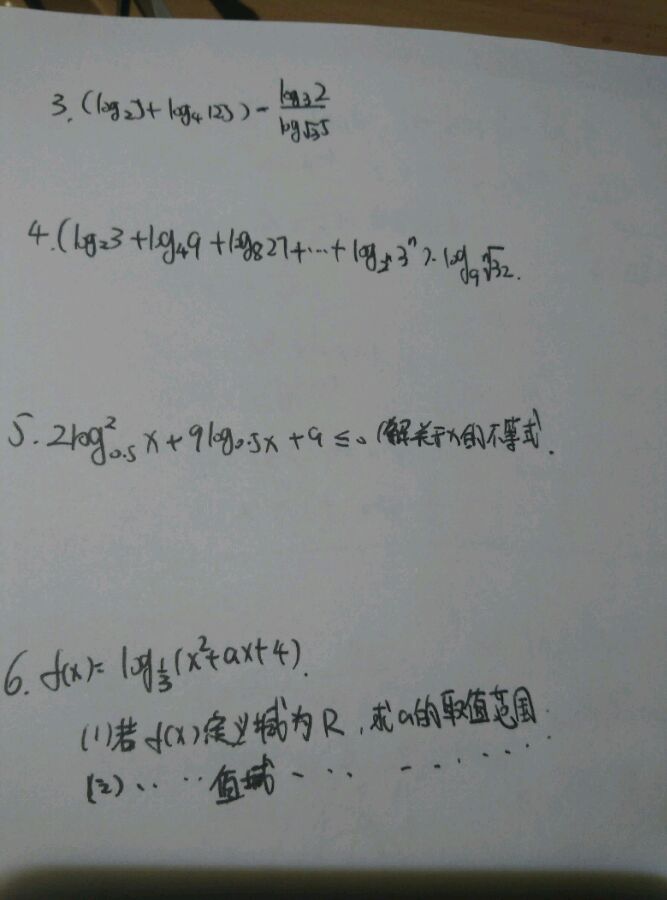 3. (log₂5 + log₄125) - log₃2 / log√₃5
4. (log₂3 + log₄9 + log₈27 + ... + log₂ⁿ 3ⁿ) · log₉ ⁿ√32.
5. 2log²₀.₅ x + 9log₀.₅x + 9 ≤ 0 (解关于x的不等式.
6. f(x) = log⅓(x²+ax+4).
(1) 若 f(x) 定义域为 R, 求a的取值范围.
(2) ‥ ‥ 值域 - ‥ - ......